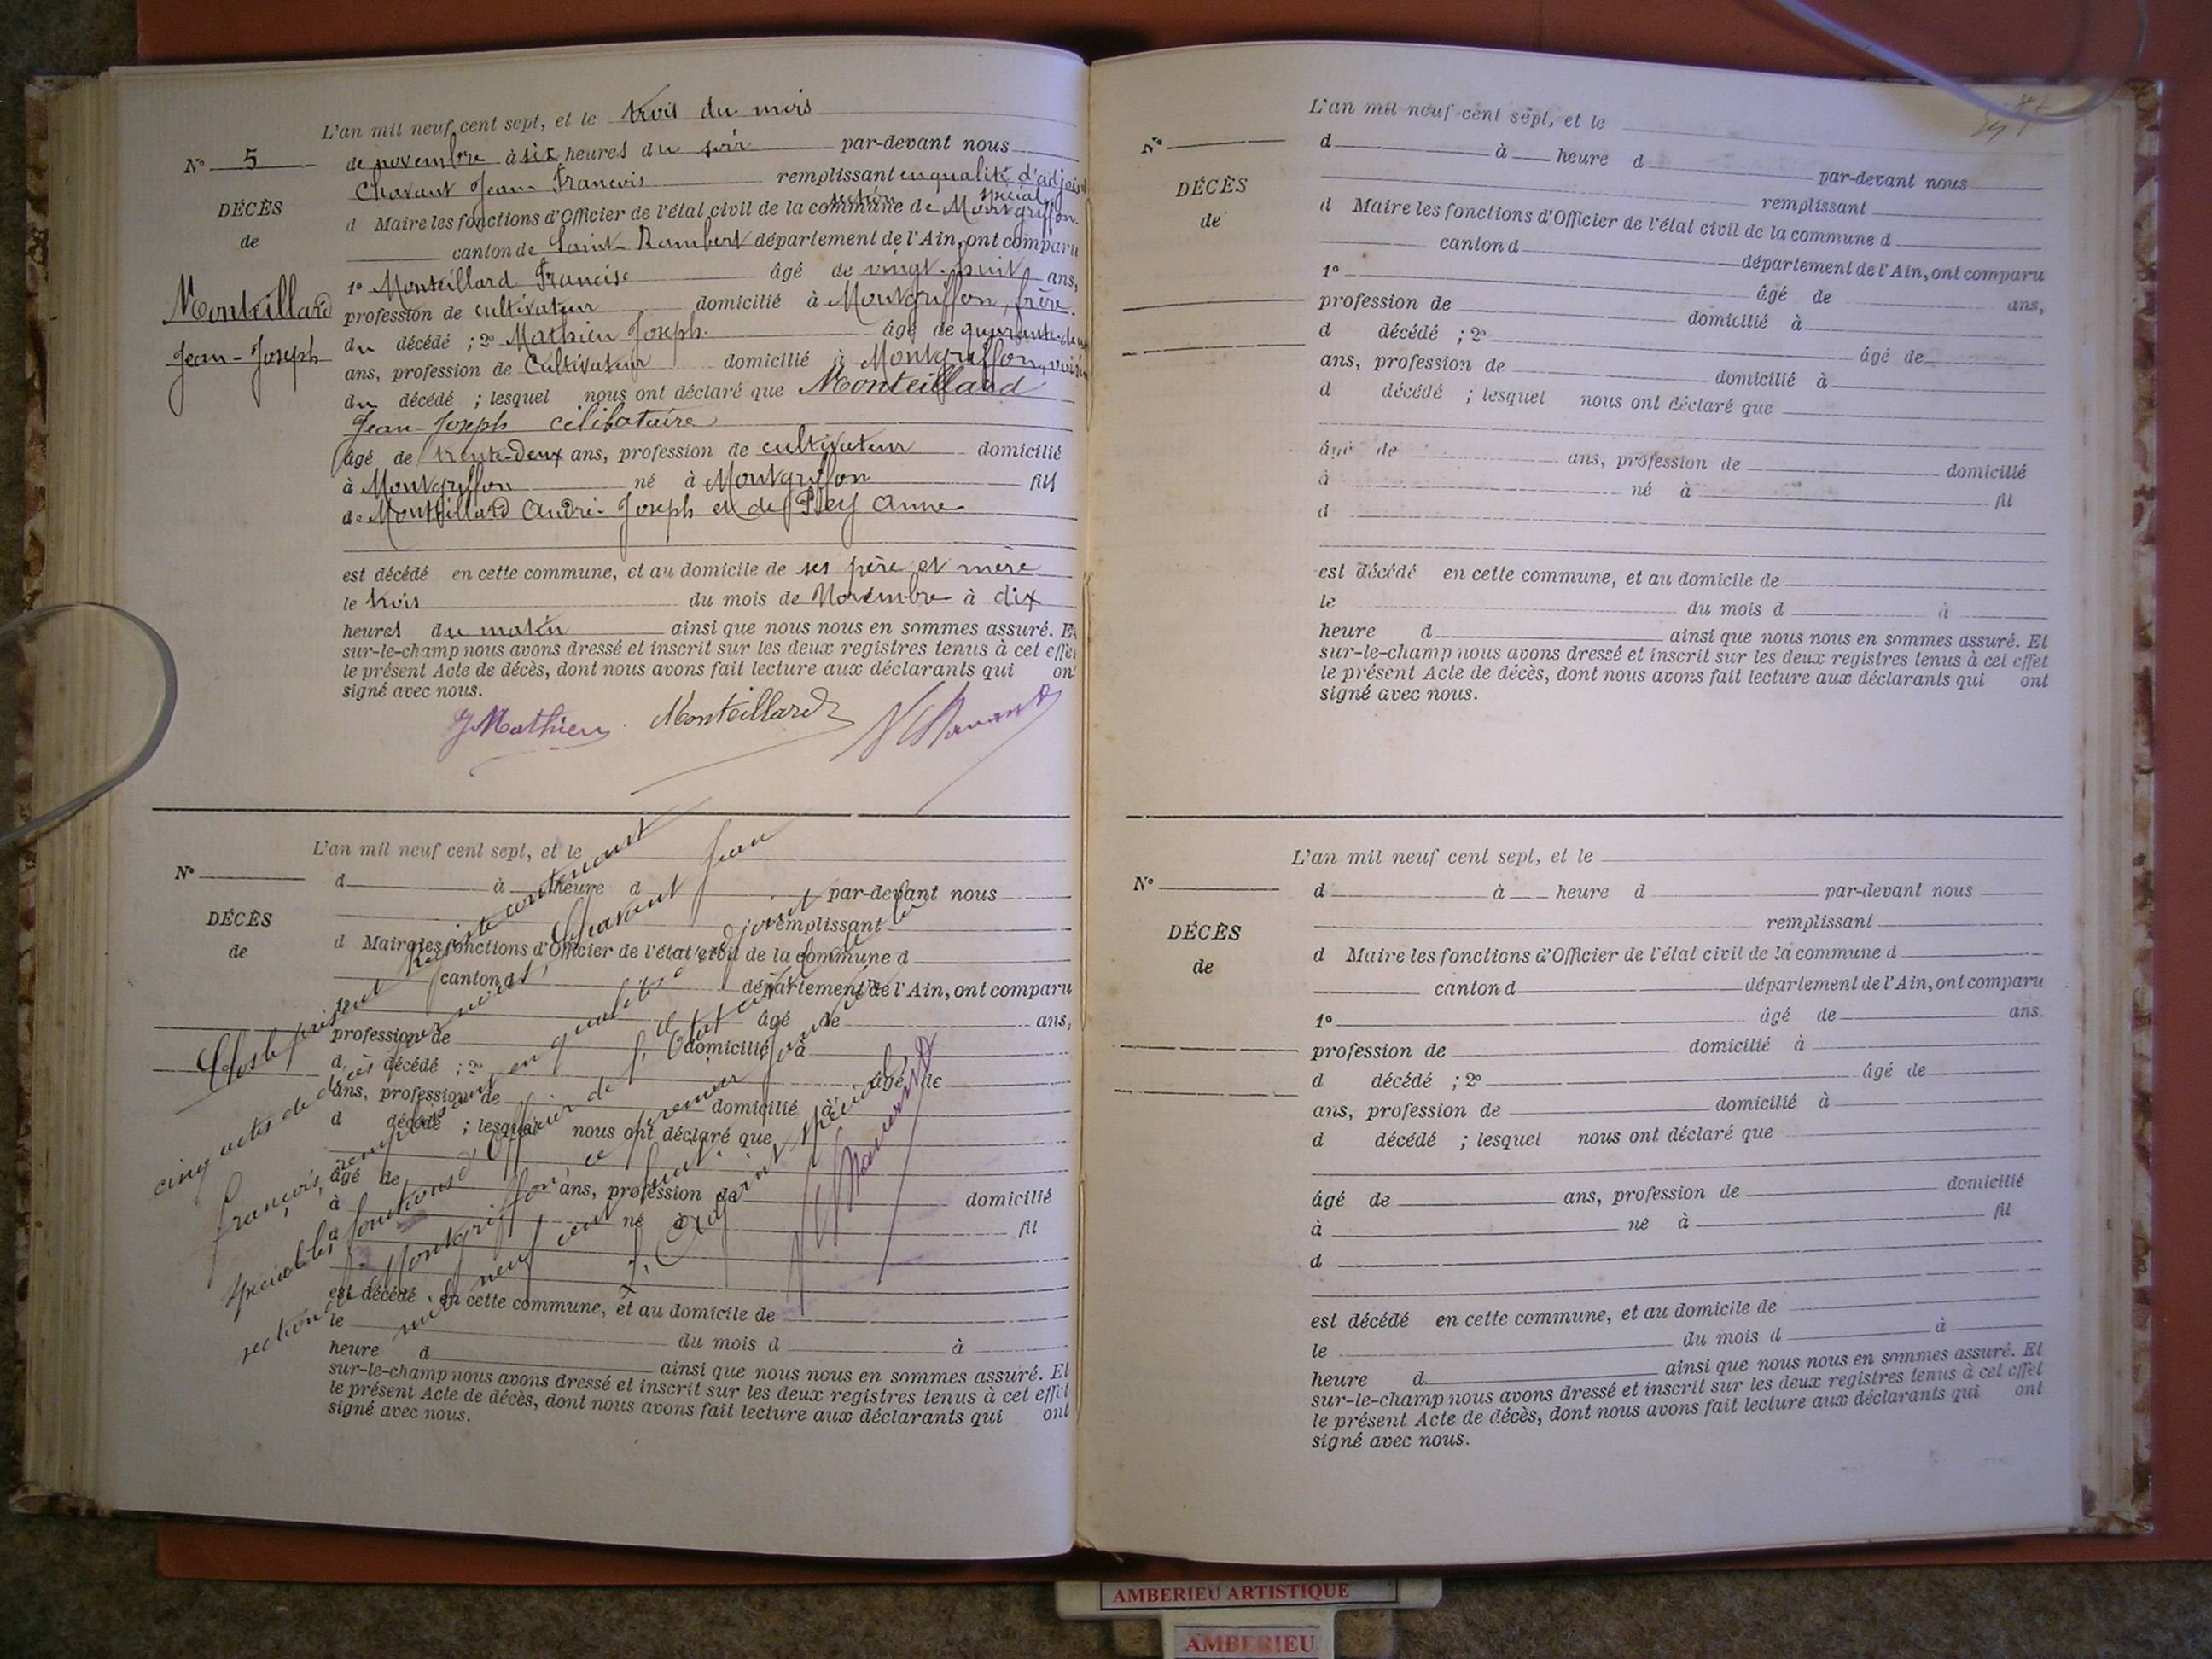 L'an mil neuf cent sept, et le trois du mois
N° 5
de novembre à six heures du soir par-devant nous
Chavant Jean François remplissant en qualité d'adjoint
spécial
section
DÉCÈS
d Maire les fonctions d'Officier de l'état civil de la commune de Montgriffon
de
canton de Saint-Rambert département de l'Ain, ont comparu
1° Monteillard Francisc âgé de vingt-huit ans,
Monteillard
profession de cultivateur domicilié à Montgriffon, frère
du décédé ; 2° Mathieu Joseph. âgé de quarante-deux
Jean-Joseph
ans, profession de Cultivateur domicilié à Montgriffon, voisin
du décédé ; lesquel nous ont déclaré que Monteillard
Jean-Joseph célibataire
âgé de trente-deux ans, profession de cultivateur domicilié
à Montgriffon né à Montgriffon fils
de Monteillard André-Joseph et de Pley Anne
est décédé en cette commune, et au domicile de ses père et mère
le trois du mois de Novembre à dix
heures du matin ainsi que nous nous en sommes assuré. Et
sur-le-champ nous avons dressé et inscrit sur les deux registres tenus à cet effet
le présent Acte de décès, dont nous avons fait lecture aux déclarants qui ont
signé avec nous.
J Mathieu Monteillard Chavant
L'an mil neuf cent sept, et le
N°
d à heure d par-devant nous
remplissant
DÉCÈS
d Maire les fonctions d'Officier de l'état civil de la commune d
de
canton d département de l'Ain, ont comparu
âgé de ans,
profession de domicilié à
d décédé ; 2° âgé de
ans, profession de domicilié à
d décédé ; lesquel nous ont déclaré que
âgé de ans, profession de domicilié
à né à fil
est décédé en cette commune, et au domicile de
le du mois d à
heure d ainsi que nous nous en sommes assuré. Et
sur-le-champ nous avons dressé et inscrit sur les deux registres tenus à cet effet
le présent Acte de décès, dont nous avons fait lecture aux déclarants qui ont
signé avec nous.
Clos le présent Registre contenant
cinq actes de décès par nous, Chavant Jean
François, remplissant en qualité d'adjoint
spécial les fonctions d'Officier de l'état civil de la
section de Montgriffon ce premier janvier
mil neuf cent huit.
L'Adjoint spécial
Chavant
L'an mil neuf cent sept, et le
N°
d à heure d
par-devant nous
DÉCÈS
remplissant
de
d Maire les fonctions d'Officier de l'état civil de la commune d
canton d département de l'Ain, ont comparu
1° âgé de ans,
profession de domicilié à
d décédé ; 2° âgé de
ans, profession de domicilié à
d décédé ; lesquel nous ont déclaré que
âgé de ans, profession de domicilié
à né à fil
d
est décédé en cette commune, et au domicile de
le du mois d à
heure d ainsi que nous nous en sommes assuré. Et
sur-le-champ nous avons dressé et inscrit sur les deux registres tenus à cet effet
le présent Acte de décès, dont nous avons fait lecture aux déclarants qui ont
signé avec nous.
L'an mil neuf cent sept, et le
N°
d à heure d par-devant nous
remplissant
DÉCÈS
d Maire les fonctions d'Officier de l'état civil de la commune d
de
canton d département de l'Ain, ont comparu
1° âgé de ans.
profession de domicilié à
d décédé ; 2° âgé de
ans, profession de domicilié à
d décédé ; lesquel nous ont déclaré que
âgé de ans, profession de domicilié
à né à fil
d
est décédé en cette commune, et au domicile de
le du mois d à
heure d ainsi que nous nous en sommes assuré. Et
sur-le-champ nous avons dressé et inscrit sur les deux registres tenus à cet effet
le présent Acte de décès, dont nous avons fait lecture aux déclarants qui ont
signé avec nous.
AMBERIEU ARTISTIQUE
AMBERIEU